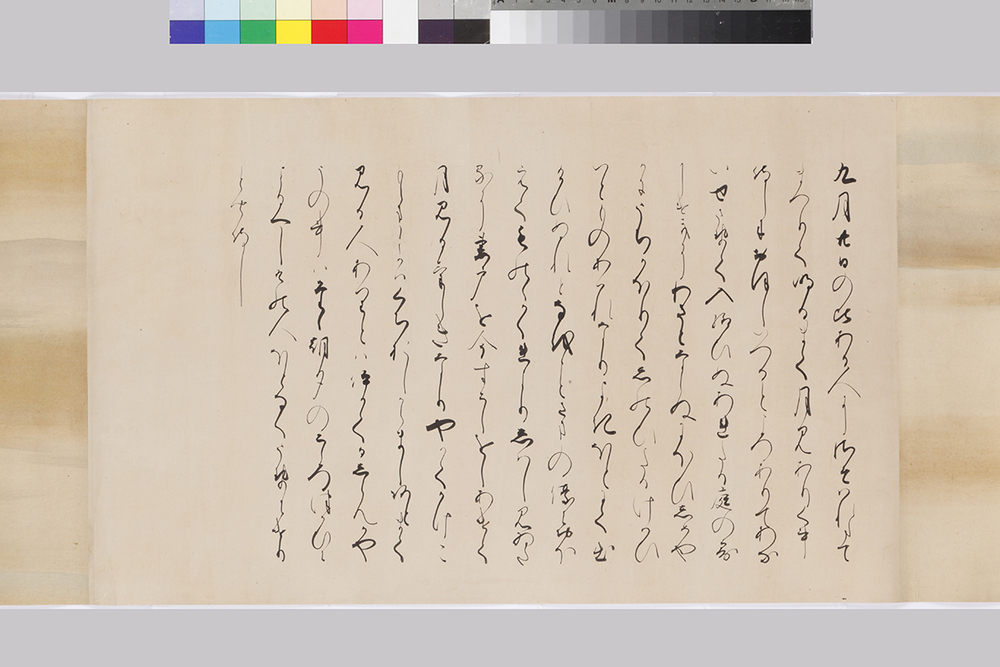 九月廿日の比ある人にさそはれ奉て
まつりて明るまて月見ありく事
侍しにおほしいつるところありてあな
いせさせて入給ひぬあれたる庭の露
しけきにわさとならぬにほひしめや
かにうちかほりてしのひたるけはひ
いとものあはれなりよきほとにて出
給ひぬれと猶ことさまの優におほ
えてものゝかくれよりしはし見ゐた
るに妻戸を今すこしをしあけて
月見るけしきなりやかてかけこ
もらましかはくちおしからまし跡まて
見る人ありとはいかてかしらんや
うの事はたゝ朝夕のこゝろつかひに
よるへしその人ほとなくうせにけり
ときゝ侍し